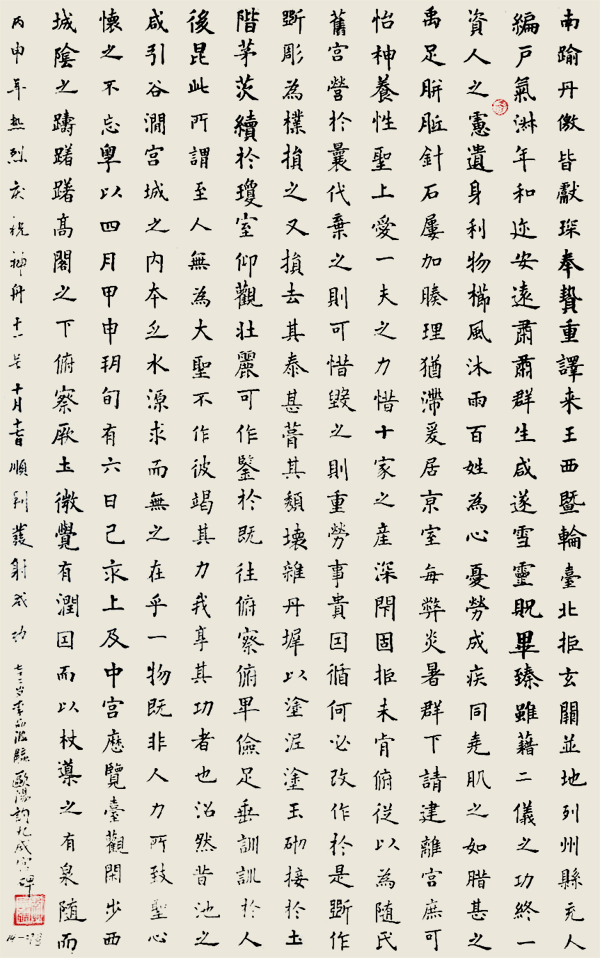 南踰丹徼皆獻琛奉贄重譯来王西暨輪臺北拒玄闕並地列州縣充人
編戶氣淋年和迩安遠肅肅群生咸遂雪靈貺畢臻雖藉二儀之功終一
資人之憲遺身利物櫛風沐雨百姓為心憂勞成疾同堯肌之如腊甚之
禹足胼胝針石屢加腠理猶滯爰居京室每弊炎暑群下請建離宮庶可
怡神養性聖上愛一夫之力惜十家之産深閇固拒未肯俯從以為隨氏
舊宮營於曩代棄之則可惜毀之則重勞事貴因循何必改作於是斲作
斲彫為樸損之又損去其泰甚葺其頹壞雜丹墀以塗涅塗玉砌接於土
階茅茨續於瓊室仰觀壯麗可作鑒於既往俯察俯卑儉足垂訓訓於人
後昆此所謂至人無為大聖不作彼竭其力我享其功者也沼然昔池之
咸引谷澗宮城之内本乏水源求而無之在乎一物既非人力所致聖心
懷之不忘粵以四月甲申玥旬有六日己亥上及中宮應覽臺觀閑步西
城陰之躊躇躇高閣之下俯察厥土微覺有潤因而以杖導之有泉隨而
丙申年熱烈慶祝神舟十一号十月十七日順利發射成功
七十三岁李波臨歐陽詢九成宮碑